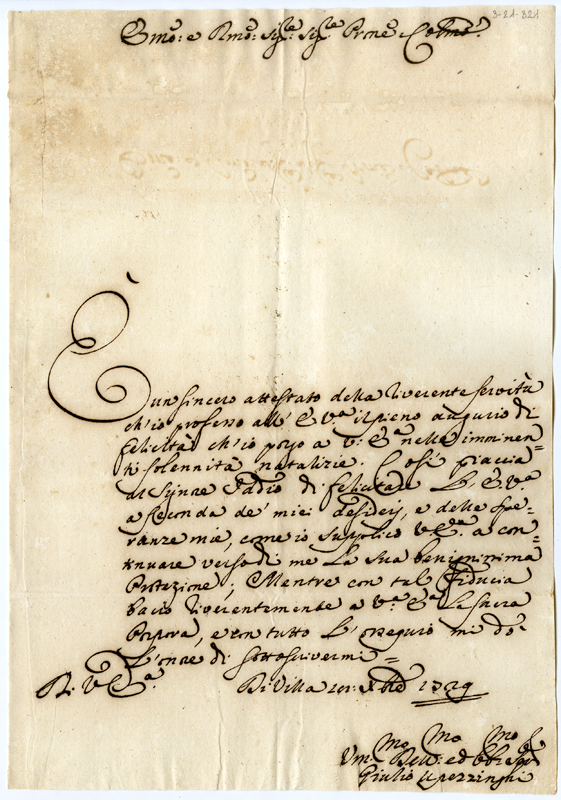 3-21-321
Emo: e Rmo: Sig:re Sig:re Prone Colmo:
È un sincero attestato della riverente servitù
ch'io professo all' E. V.a il pieno augurio di
felicità ch'io porgo a V: E.a nelle imminen=
ti solennità natalizie. Così piaccia
al Signore Iddio di felicitare L' E. V.a
a seconda de' miei desiderij, e delle spe=
ranze mie, come io supplico V. E.a a con=
tinuare verso di me la sua benignissima
Protezione; Mentre con tal fiducia
bacio riverentemente a V.a E.a la Sacra
Porpora, e con tutto L'ossequio mi do
L'onore di sottoscrivermi =
Di V. E.a.
Di Villa 1729
Um:mo Dev:mo ed Obb:mo
Giulio Upezzinghi